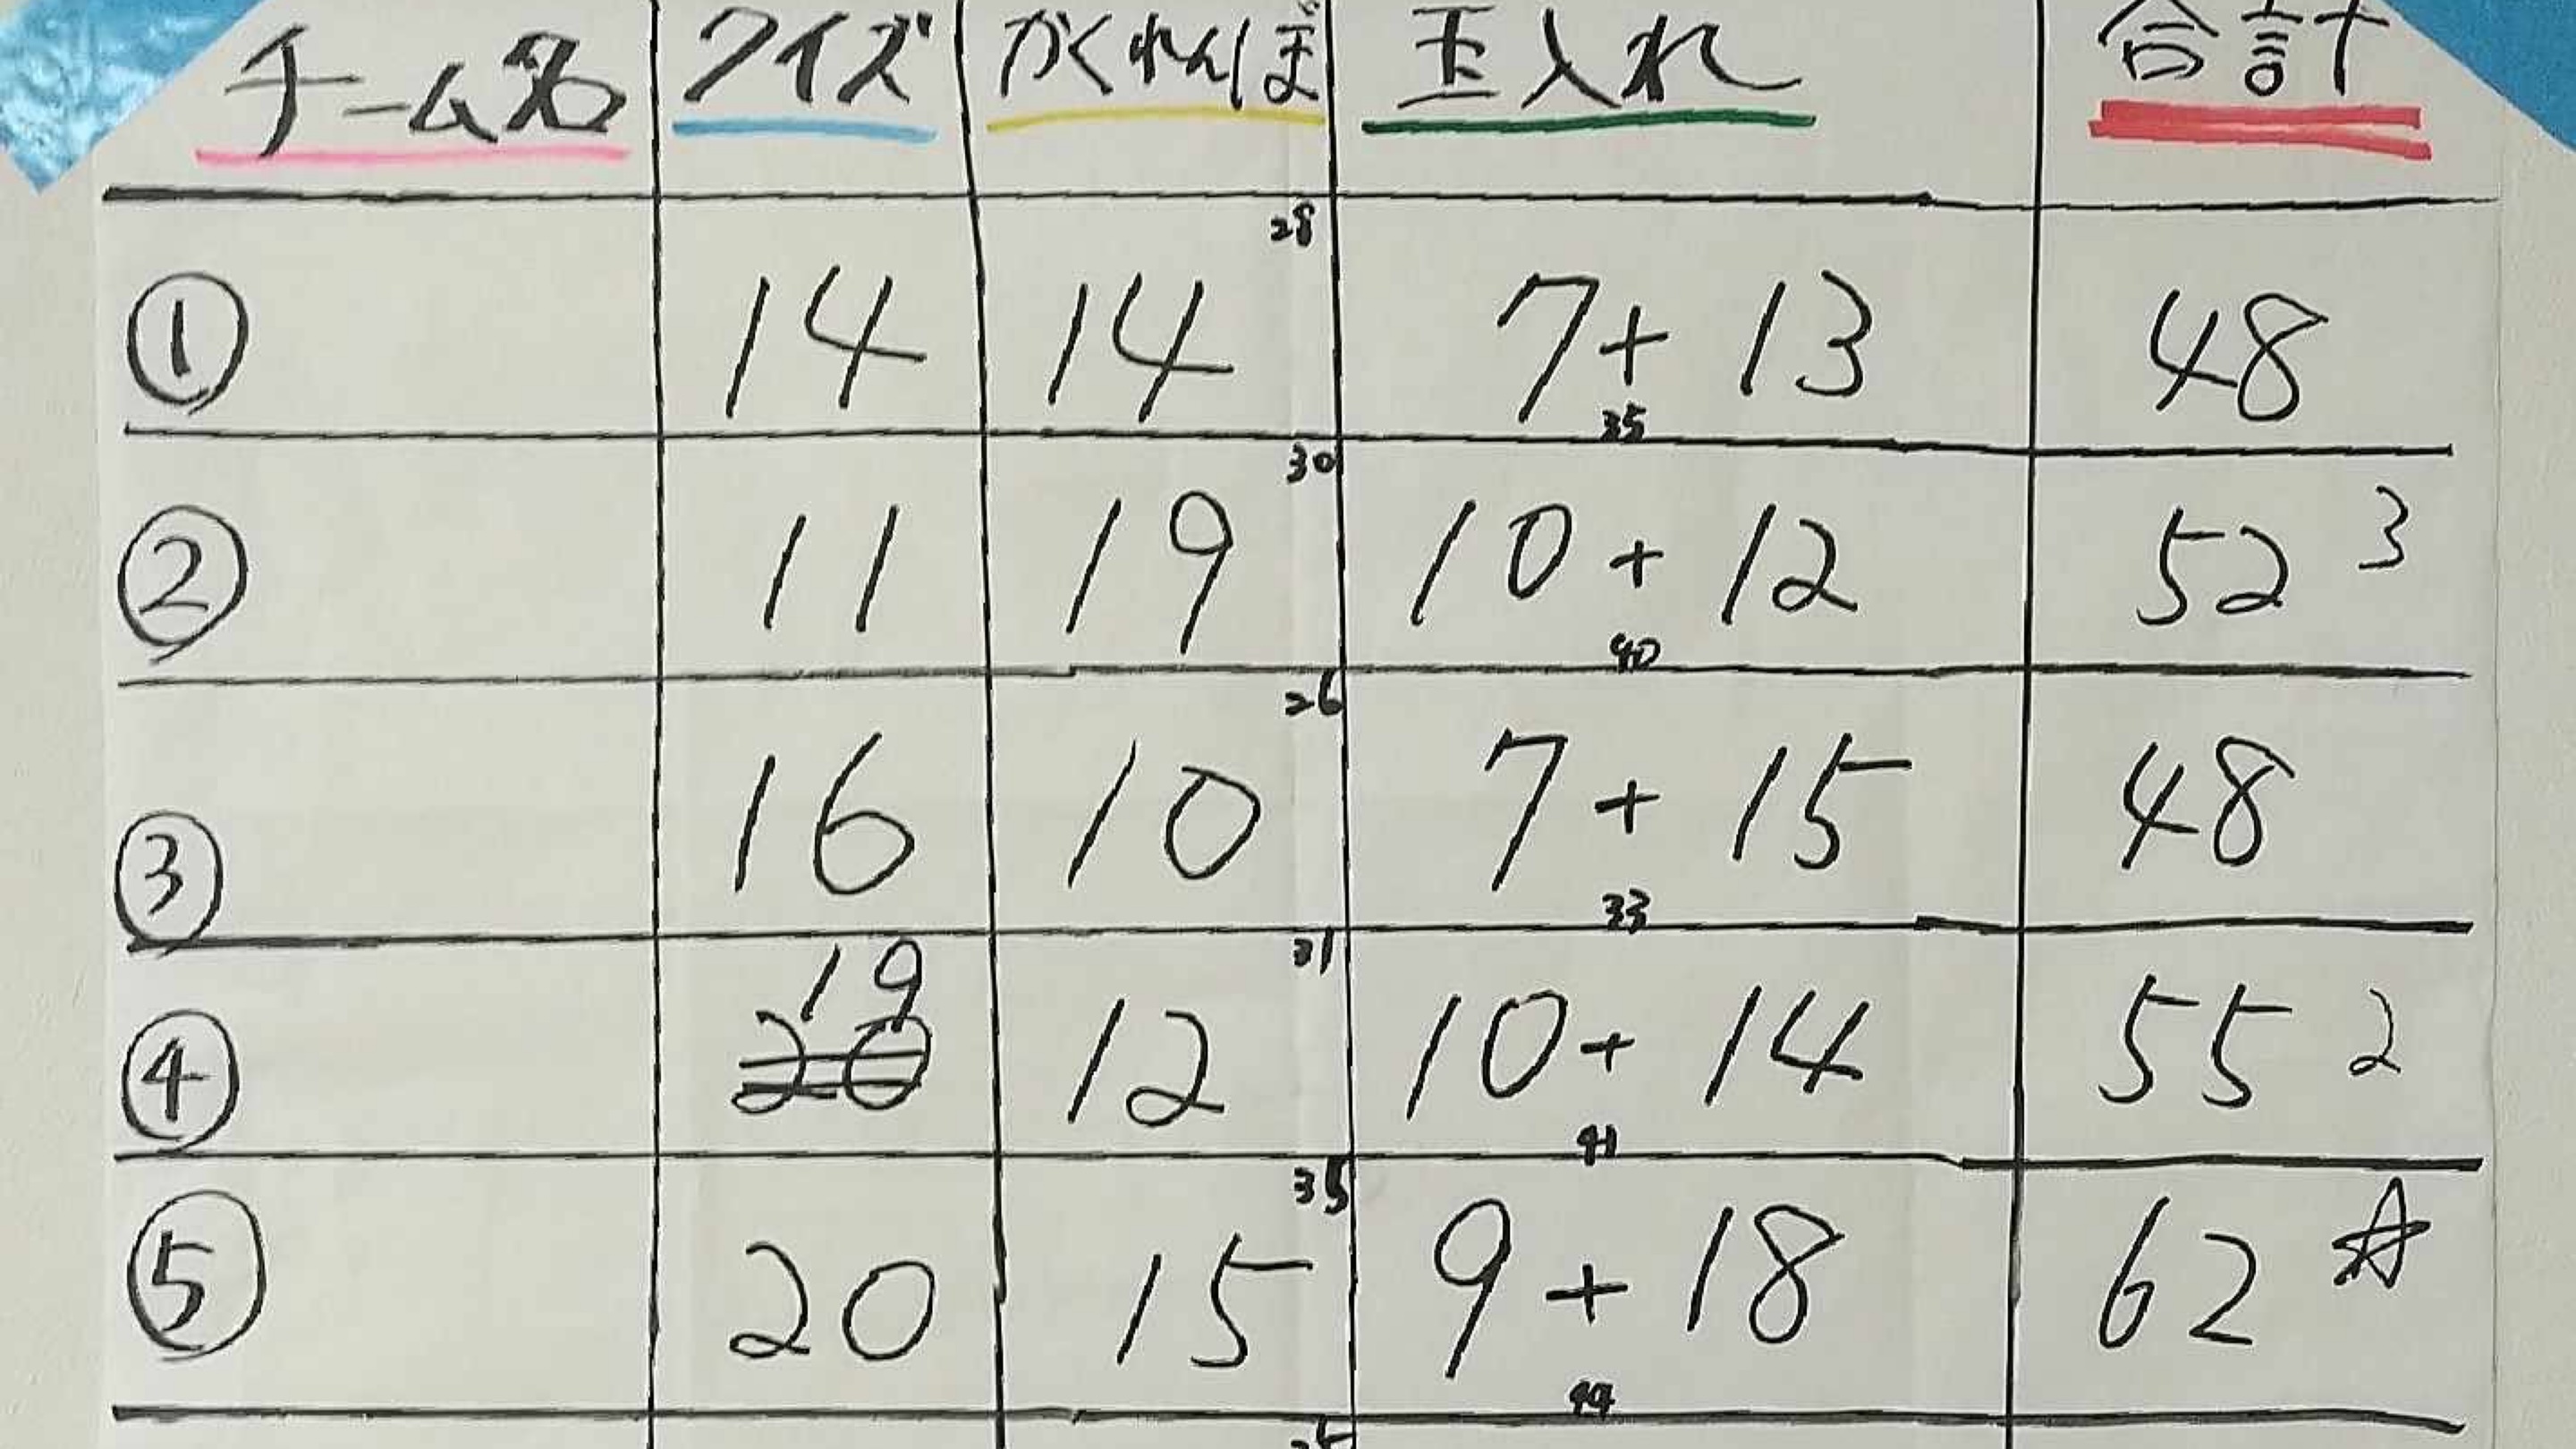 チーム名 クイズ かくれんぼ 玉入れ 合計
28
① 14 14 7+13 48
35
30
② 11 19 10+12 52 3
40
26
③ 16 10 7+15 48
33
31
19
④ 20 12 10+14 55 2
41
35
⑤ 20 15 9+18 62 ☆
44